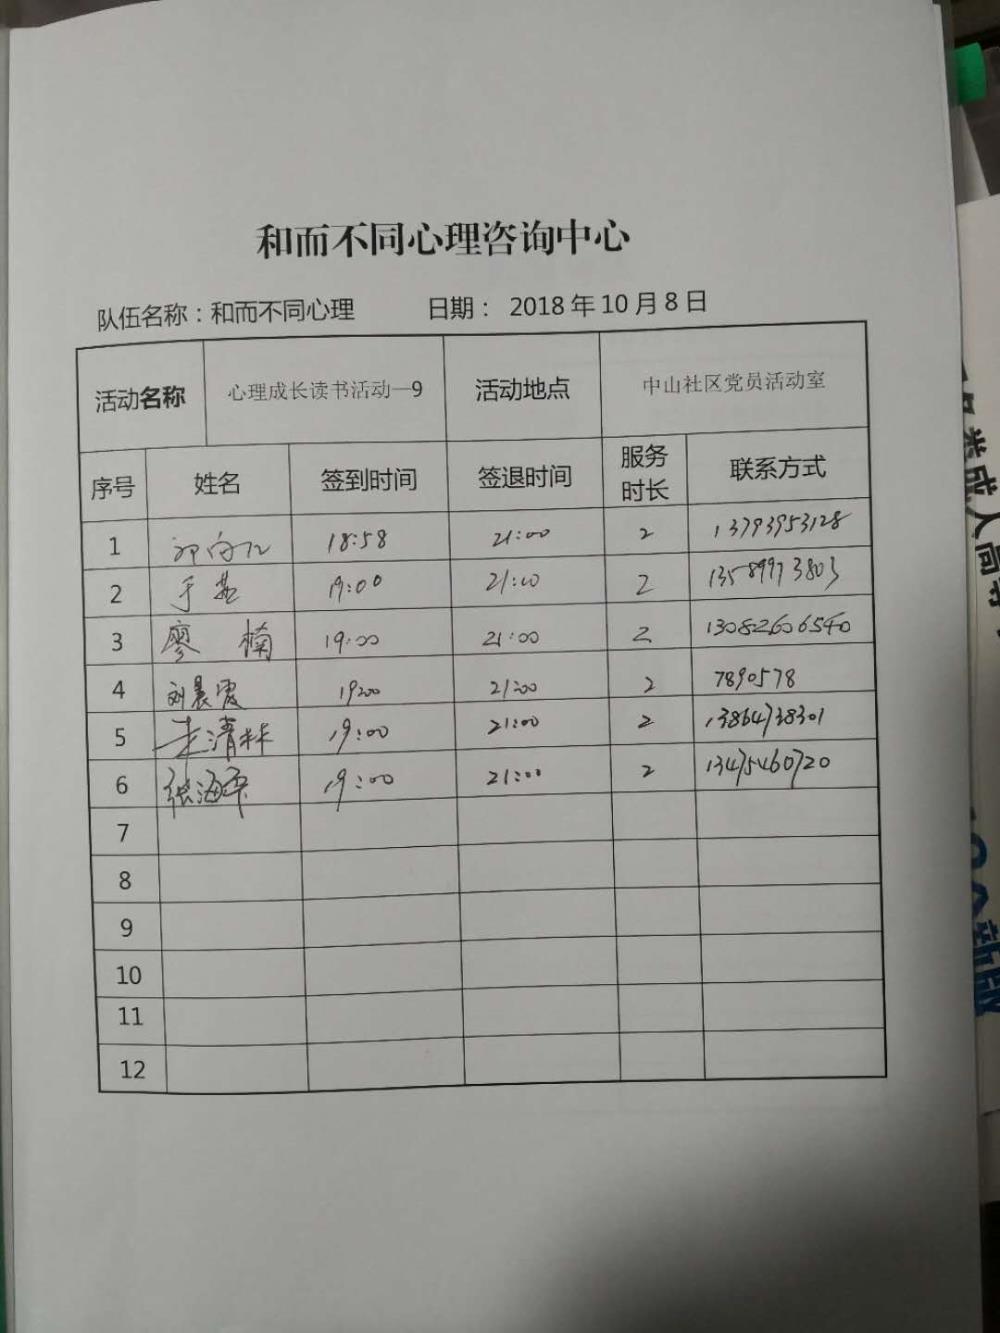 和而不同心理咨询中心
队伍名称：和而不同心理 日期： 2018年10月8日
活动名称 心理成长读书活动—9 活动地点 中山社区党员活动室
序号 姓名 签到时间 签退时间 服务时长 联系方式
1 18:58 21:00 2 13793953128
2 于 19:00 21:00 2 13589973803
3 廖楠 19:00 21:00 2 13082606540
4 刘晨霞 19:00 21:00 2 7890578
5 清林 19:00 21:00 2 13864738301
6 张海平 19:00 21:00 2 13475460720
7
8
9
10
11
12